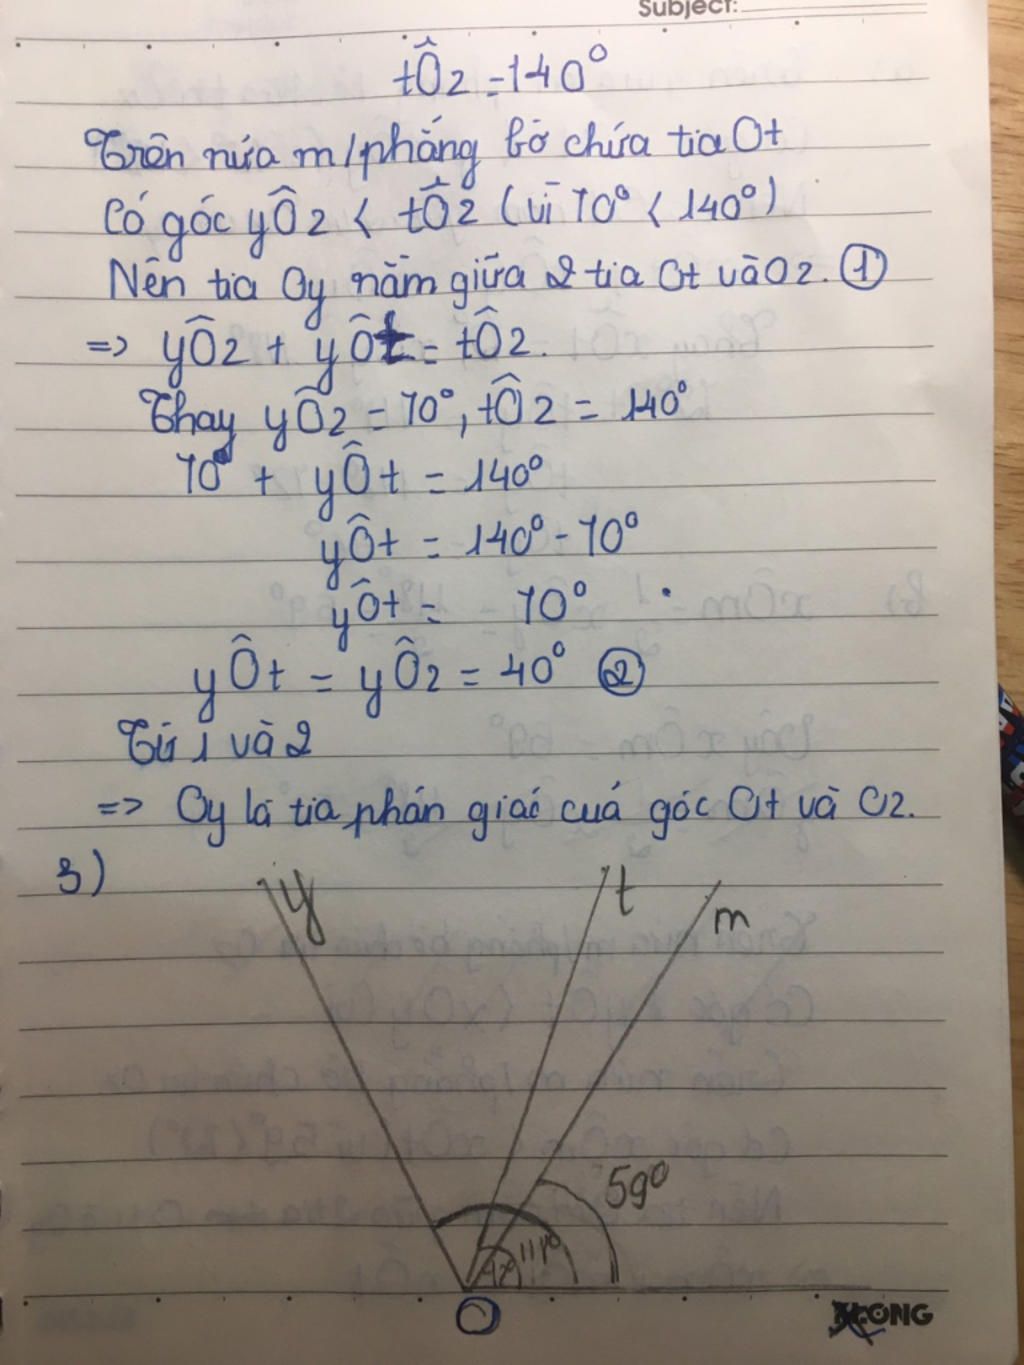 Subject:
tÔz = 140°
Trên nửa m/phẳng bờ chứa tia Ot
Có góc yÔz < tÔz (vì 70° < 140°)
Nên tia Oy nằm giữa 2 tia Ot và Oz. ①
=> yÔz + yÔt = tÔz.
Thay yÔz = 70°, tÔz = 140°
70° + yÔt = 140°
yÔt = 140° - 70°
yÔt = 70°
yÔt = yÔz = 40° ②
Từ 1 và 2
=> Oy là tia phân giác của góc Ot và Oz.
3)
y t m
59°
O
KLONG